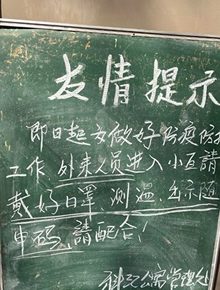 友情提示
即日起为做好防疫防控
工作,外来人员进入小区請
戴好口罩、测温、出示随
申码,請配合!
公寓管理处